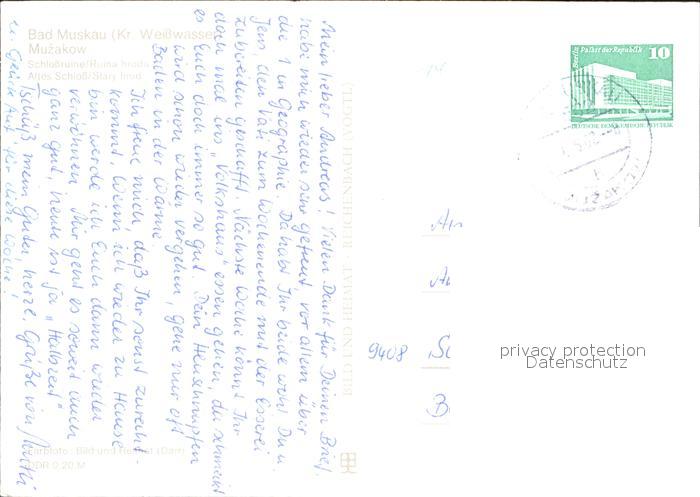 Bad Muskau (Kr. Weißwasser)
Mužakow
Schloßruine/Ruina hroda
Altes Schloß/Stary hrod
Mein lieber Andreas! Vielen Dank für Deinen Brief,
habe mich wieder sehr gefreut, vor allem über
die 1 in Geographie. Da habt Ihr beide wohl Du u.
Jens, den Vati zum Wochenende mit der Esserei
zufrieden geschafft. Nächste Woche könnt Ihr
doch mal ins "Volkshaus" essen gehen, da schmeckt
es Euch doch immer so gut. Dein Heuschnupfen
wird schon wieder vergehen, gehe nur oft
Baden in der Wanne
Ich freue mich, daß Ihr sonst zurecht-
kommt. Wenn ich wieder zu Hause
bin werde ich Euch dann wieder
verwöhnen. Mir geht es soweit auch
ganz gut, heute ist ja "Halbzeit"
Tschüß mein Guter, herzl. Grüße von Mutti
u. Glück auf für diese Woche!
Farbfoto: Bild und Heimat (Darr)
DDR 0,20 M
BILD UND HEIMAT REICHENBACH
Berlin, Palast der Republik
10
DEUTSCHE DEMOKRATISCHE REPUBLIK
An
9408
B
privacy protection
Datenschutz